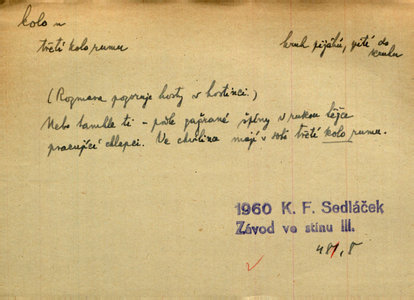 kolo n
třetí kolo rumu
kruh pijáků, pití do
kruhu
(Rozmara pozoruje hosty v hostinci.)
Nebo tamhle ti – půle špíny v rukou těžce
pracující chlapci. Ve chvilce mají v sobě třetí kolo rumu.
1960 K. F. Sedláček
Závod ve stínu III.
48, 8